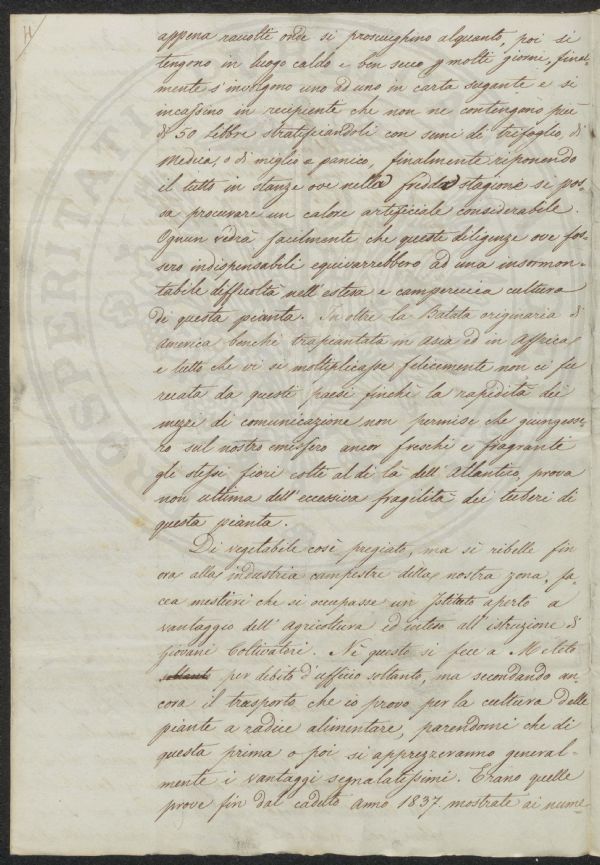 appena raccolte onde si prosciughino alquanto, poi si
tengono in luogo caldo e ben secco p molti giorni, final-
mente s'involgono uno ad uno in carta sugante e si
incassino in recipiente che non ne contengono più
di 50 Libbre stratificandoli con semi di trifoglio, di
Medica, o di miglio e panico, finalmente riponendo
il tutto in stanze ove nella fredda stagione si pos-
sa procurare un calore artificiale considerabile.
Ognun vedrà facilmente che queste diligenze ove fos-
sero indispensabili equivarrebbero ad una insormon-
tabile difficoltà nell'estesa e campereccia cultura
di questa pianta. In oltre la Batata originaria di
America benché trapiantata in Asia ed in Affrica,
e tutto che vi si moltiplicasse felicemente non ci fu
recata da questi paesi finchè la rapidità dei
mezzi di comunicazione non permise che giungesse-
ro sul nostro emisfero ancor freschi e fragranti
gli stessi fiori colte al di là dell'Atlantico, prova
non ultima dell'eccessiva fragilità dei tuberi di
questa pianta.
Di vegetabile così pregiato, ma sì ribelle fin
ora alla industria campestre della nostra zona, fa-
cea mestieri che si occupasse un Istituto aperto a
vantaggio dell'Agricoltura ed inteso all'istruzione di
Giovani Coltivatori. Nè questo si fece a Meleto
soltanto per debito d'ufficio soltanto, ma secondando an-
cora il trasporto che io provo per la cultura delle
piante a radice alimentare, parendomi che di
questa prima o poi si apprezzeranno general-
mente i vantaggi segnalatissimi. Erano quelle
prove fin dal caduto anno 1837 mostrate ai nume